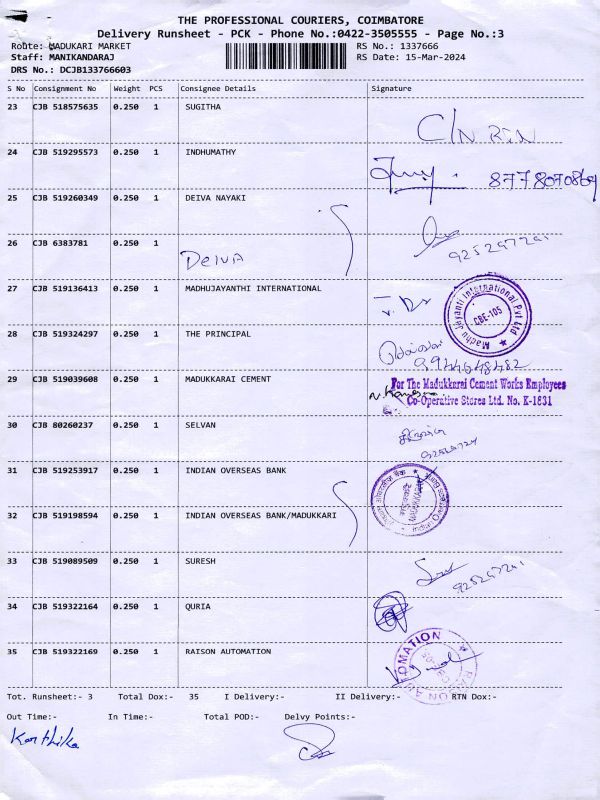 THE PROFESSIONAL COURIERS, COIMBATORE
Delivery Runsheet - PCK - Phone No.:0422-3505555 - Page No.:3
Route: MADUKARI MARKET RS No.: 1337666
Staff: MANIKANDARAJ RS Date: 15-Mar-2024
DRS No.: DCJB133766603
S No Consignment No Weight PCS Consignee Details Signature
23 CJB 518575635 0.250 1 SUGITHA
C/N RIN
24 CJB 519295573 0.250 1 INDHUMATHY
8778070869
25 CJB 519260349 0.250 1 DEIVA NAYAKI
26 CJB 6383781 0.250 1
Deiva
27 CJB 519136413 0.250 1 MADHUJAYANTHI INTERNATIONAL
Madhu Jayanti International Pvt Ltd
CBE-105
28 CJB 519324297 0.250 1 THE PRINCIPAL
9944648482
29 CJB 519039608 0.250 1 MADUKKARAI CEMENT
For The Madukkarai Cement Works Employees
Co-Operative Stores Ltd. No. K-1831
30 CJB 80260237 0.250 1 SELVAN
31 CJB 519253917 0.250 1 INDIAN OVERSEAS BANK
32 CJB 519198594 0.250 1 INDIAN OVERSEAS BANK/MADUKKARI
33 CJB 519089509 0.250 1 SURESH
34 CJB 519322164 0.250 1 QURIA
35 CJB 519322169 0.250 1 RAISON AUTOMATION
AUTOMATION
Tot. Runsheet:- 3 Total Dox:- 35 I Delivery:- II Delivery:- RTN Dox:-
Out Time:- In Time:- Total POD:- Delvy Points:-
Karthika